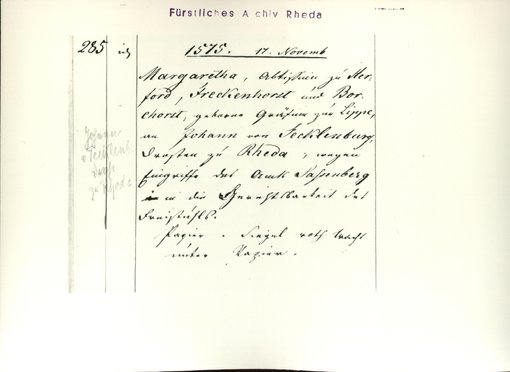 Fürstliches Archiv Rheda
285
1575. 17. Novemb
Margaretha, Abtissin zu Her-
ford, Freckenhorst und Bor-
chorst, geborne Gräfin zur Lippe,
an Johann von Tecklenburg,
Drosten zu Rheda, wegen
Eingriffe des Amts Sassenberg
in die Gerichtsbarkeit des
Freistuhls.
Papier. Siegel roth Wachs
unter Papier.
Johann
v Tecklenb
Drost
zu Rheda